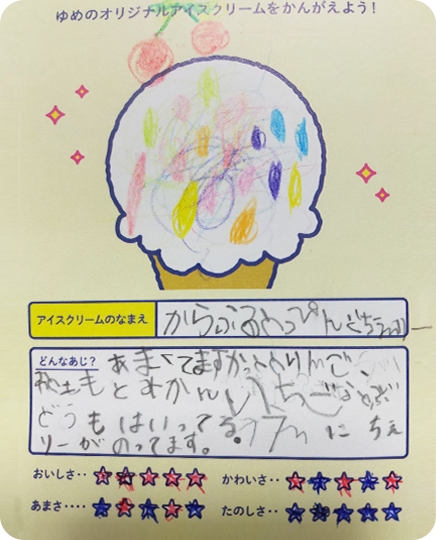 ゆめのオリジナルアイスクリームをかんがえよう！
アイスクリームのなまえ
からふるとっぴんぐちぇりー
どんなあじ？
あまくてますかっととりんご、
ももとみかん いちごなとぶ
どうもはいってる。 に ちぇ
リーがのってます。
おいしさ‥ ☆☆☆☆☆ かわいさ‥ ☆☆☆☆☆
あまさ‥‥ ☆☆☆☆☆ たのしさ‥ ☆☆☆☆☆